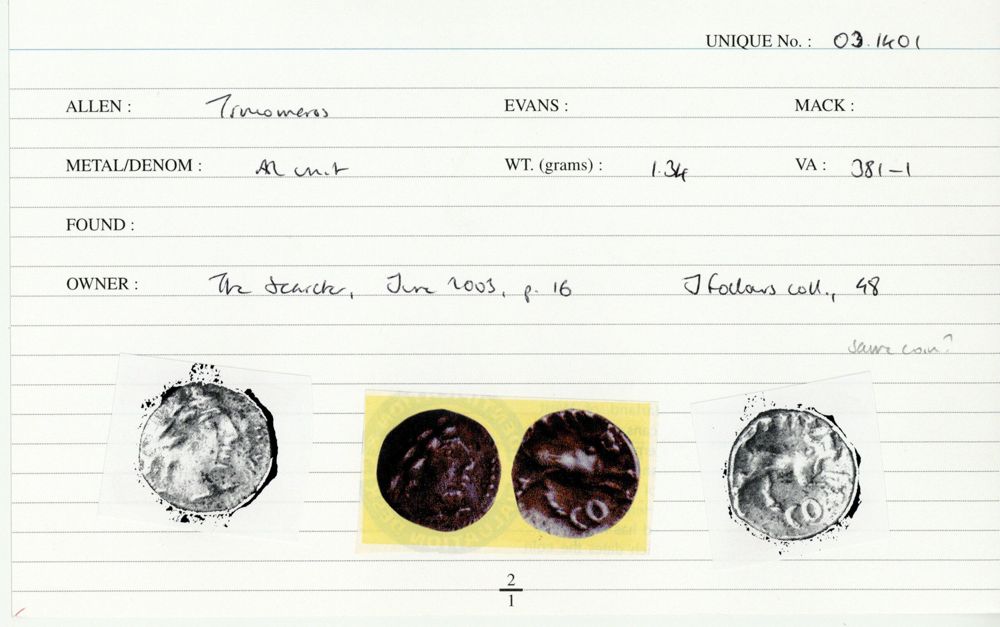 UNIQUE No. : 03.1401
ALLEN : EVANS : MACK :
METAL/DENOM : AR unit WT. (grams) : 1.34 VA : 381-1
FOUND :
OWNER : The Searcher, June 2003, p. 16 coll., 48
same coin?
CO CO
2
1